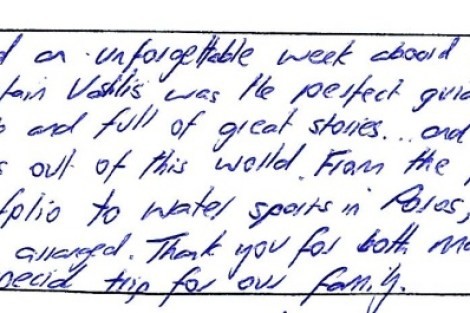 d an unforgettable week aboard
tain Vasilis was the perfect guid
and full of great stories... and
s out of this world. From the
folio to water sports in Poros,
arranged. Thank you for both ma
pecial trip for our family.